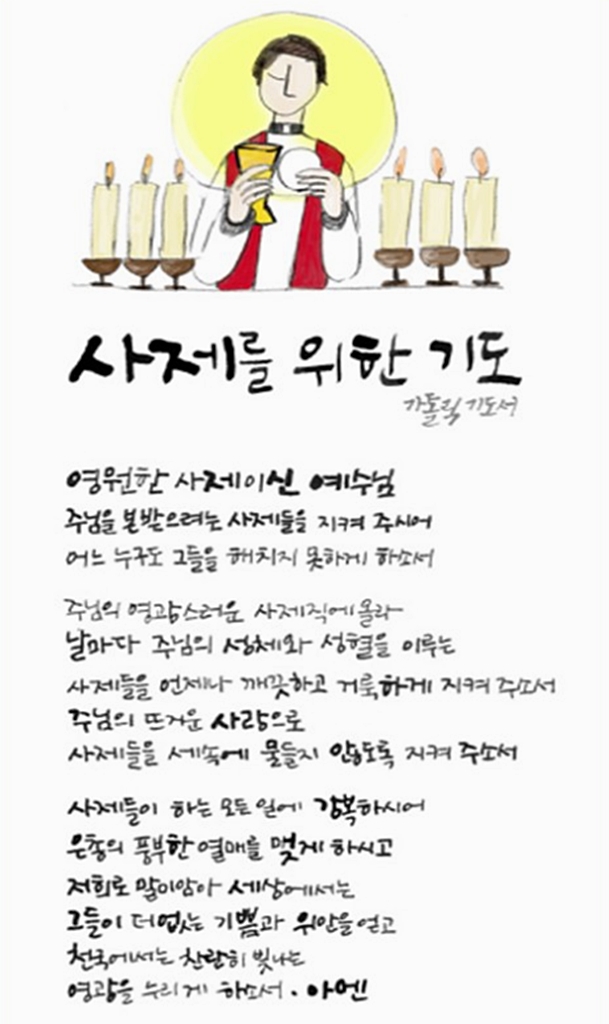 사제를 위한 기도
가톨릭 기도서
영원한 사제이신 예수님
주님을 본받으려는 사제들을 지켜 주시어
어느 누구도 그들을 해치지 못하게 하소서
주님의 영광스러운 사제직에 올라
날마다 주님의 성체와 성혈을 이루는
사제들을 언제나 깨끗하고 거룩하게 지켜 주소서
주님의 뜨거운 사랑으로
사제들을 세속에 물들지 않도록 지켜 주소서
사제들이 하는 모든 일에 강복하시어
은총의 풍부한 열매를 맺게 하시고
저희로 말미암아 세상에서는
그들이 더없는 기쁨과 위안을 얻고
천국에서는 찬란히 빛나는
영광을 누리게 하소서. 아멘